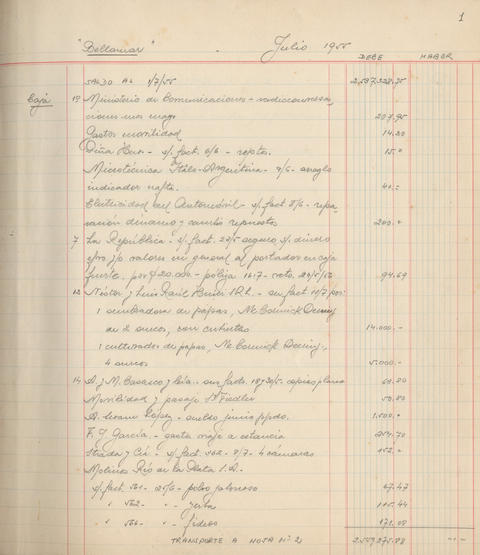 1
"Bellamar" Julio 1955
DEBE HABER
SALDO AL 1/7/55
Caja 1º Ministerio de Comunicaciones - radiocomunica-
ciones mes mayo 207.95
Gastos movilidad 14.20
Piña Hnos - s/. fact. 6/6 - reptos. 15.-
Microtécnica Italo-Argentina - 7/5 - arreglo
indicador nafta. 40.-
Electricidad del Automóvil - s/. fact. 8/6 - repa-
ración dinamo y cambio repuestos 200.-
7 La República - s/. fact. 27/5 seguro s/. dinero
y/o valores en general al portador en caja
fuerte. por $ 20.000.- poliza 1617 - vcto. 29/5/56 94.69
12 Néstor y Luis Raúl S.R.L. - su fact 11/7 por:
1 sembradora de papas, Mc Cormick Deering
de 2 surcos, con cubiertas 14.000.-
1 cultivador de papas, Mc Cormick Deering,
4 surcos 5.000.-
14 A. y M. Cavasco y Cía. - sus facts. 18 y 30/5 - copias plano
Movilidad y pasaje Sr Fiedler 50.80
A. Lozano López - sueldo junio ppdo. 1.500.-
F. J. García - gasto viaje a estancia 254.70
Strada y Cía - s/. fact. 362 - 7/7 - 4 camaras 152.-
Molinos Río de la Plata S.A. -
s/. fact. 561 - 25/6 - polvo glorioso 67.47
" " 562 - " - yerba 115.44
" " 566 - " - fideos 171.08
TRANSPORTE A HOJA Nº 2 -.-